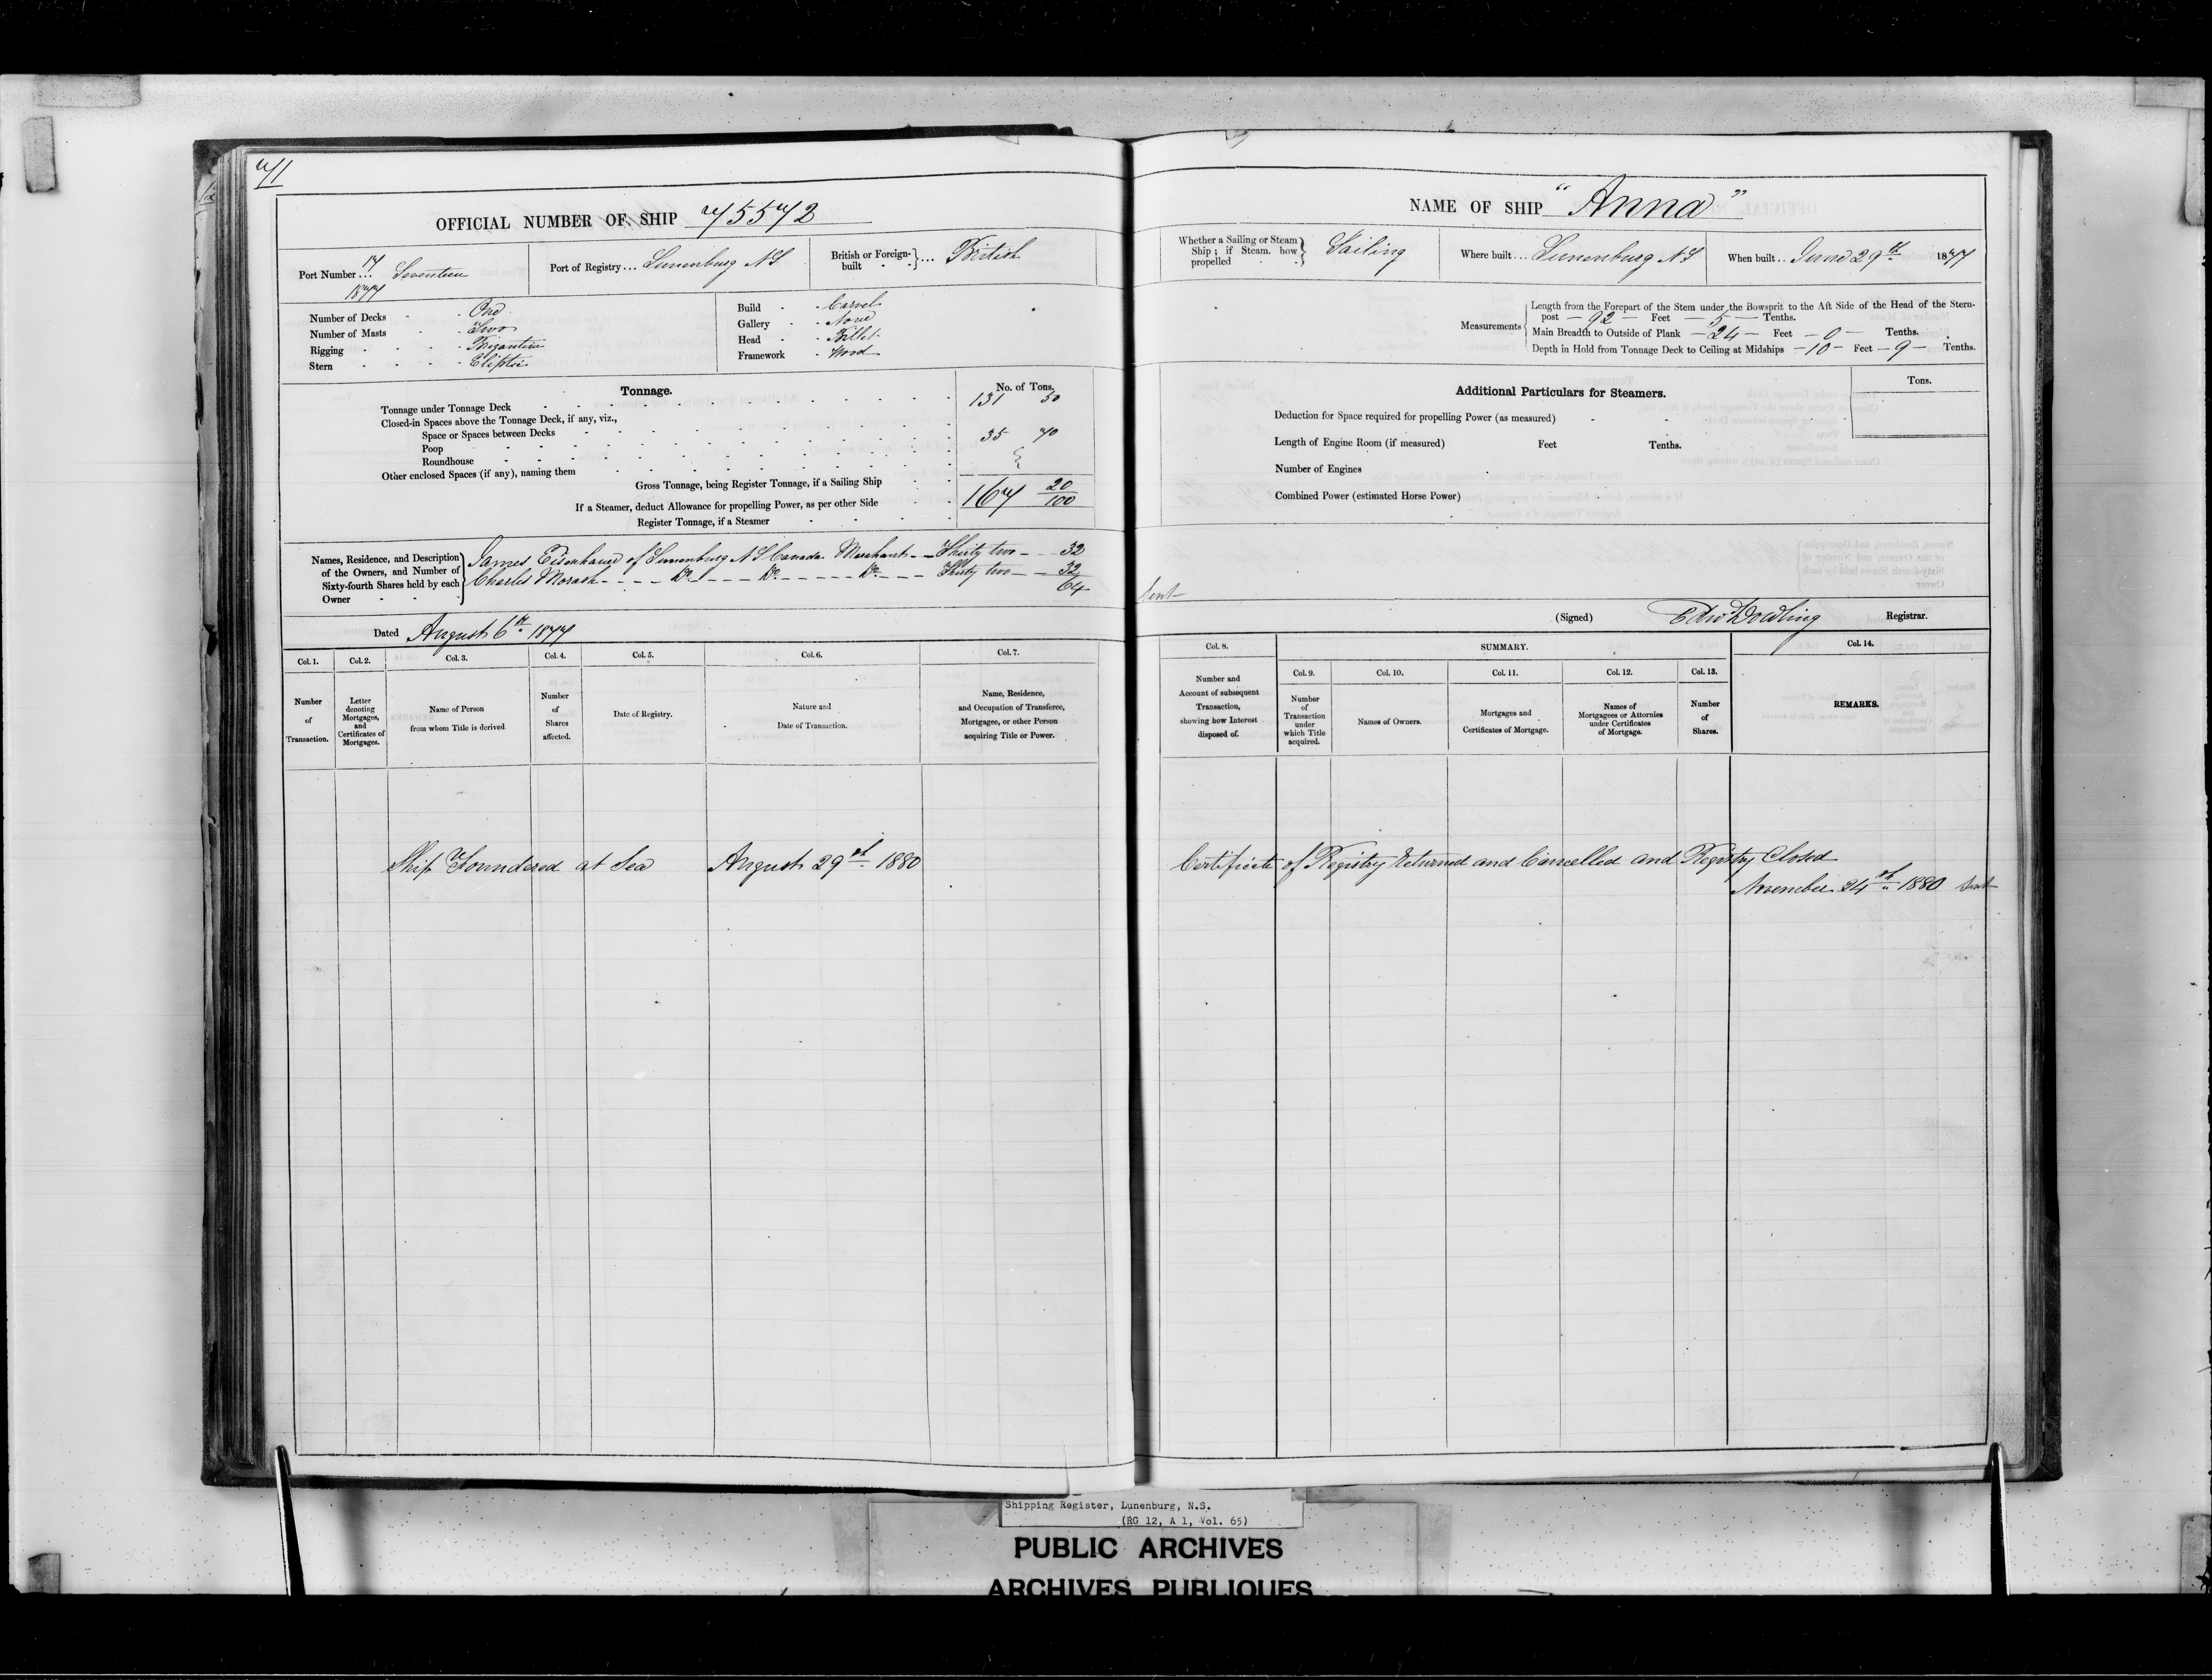 71
OFFICIAL NUMBER OF SHIP 75572
Port Number ... 17 Seventeen
1877
Port of Registry ... Lunenburg N.S.
British or Foreign-built } ... British
Number of Decks - One
Number of Masts - Two
Rigging - Brigantine
Stern - Eliptic
Build - Carvel
Gallery - None
Head - Billet
Framework - Wood
Tonnage. No. of Tons.
Tonnage under Tonnage Deck 131 50
Closed-in Spaces above the Tonnage Deck, if any, viz.,
Space or Spaces between Decks
Poop 35 70
Roundhouse
Other enclosed Spaces (if any), naming them
Gross Tonnage, being Register Tonnage, if a Sailing Ship 167 20/100
If a Steamer, deduct Allowance for propelling Power, as per other Side
Register Tonnage, if a Steamer
Names, Residence, and Description of the Owners, and Number of Sixty-fourth Shares held by each Owner
James Eisenhauer of Lunenburg N S Canada Merchant - Thirty two - 32
Charles Morash - - - - Do - - - Do - - - - Do - - - Thirty two - 32
64
Dated August 6th 1877
Col. 1. Col. 2. Col. 3. Col. 4. Col. 5. Col. 6. Col. 7.
Number of Transaction.
Letter denoting Mortgages, and Certificates of Mortgages.
Name of Person from whom Title is derived
Number of Shares affected.
Date of Registry.
Nature and Date of Transaction.
Name, Residence, and Occupation of Transferee, Mortgagee, or other Person acquiring Title or Power.
Ship Foundered at Sea August 29th 1880
NAME OF SHIP "Anna"
Whether a Sailing or Steam Ship; if Steam. how propelled } Sailing
Where built ... Lunenburg N S
When built .. June 29th 1877
Measurements
Length from the Forepart of the Stem under the Bowsprit to the Aft Side of the Head of the Stern-
post - 92 - Feet - 5 - Tenths.
Main Breadth to Outside of Plank - 24 - Feet - 0 - Tenths.
Depth in Hold from Tonnage Deck to Ceiling at Midships - 10 - Feet - 9 - Tenths.
Additional Particulars for Steamers. Tons.
Deduction for Space required for propelling Power (as measured)
Length of Engine Room (if measured) Feet Tenths.
Number of Engines
Combined Power (estimated Horse Power)
Sent
(Signed) Edw Dowling Registrar.
Col. 8. SUMMARY. Col. 14.
Col. 9. Col. 10. Col. 11. Col. 12. Col. 13.
Number and Account of subsequent Transaction, showing how Interest disposed of.
Number of Transaction under which Title acquired.
Names of Owners.
Mortgages and Certificates of Mortgage.
Names of Mortgagees or Attornies under Certificates of Mortgage.
Number of Shares.
REMARKS.
Certificate of Registry returned and Cancelled and Registry Closed
November 24th 1880 Sent
Shipping Register, Lunenburg, N.S.
(RG 12, A 1, Vol. 65)
PUBLIC ARCHIVES
ARCHIVES PUBLIQUES